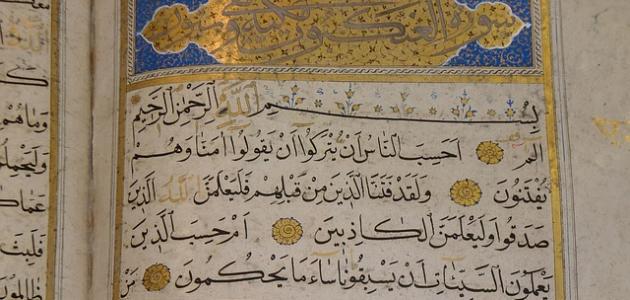 سورة العنكبوت
بسم الله الرحمن الرحيم
الم احسب الناس ان يتركوا ان يقولوا امنا وهم
يفتنون ولقد فتنا الذين من قبلهم فليعلمن الله الذين
صدقوا وليعلمن الكاذبين ام حسب الذين
يعملون السيئات ان يسبقونا ساء ما يحكمون من
وماهم
فلبث
ظالمون